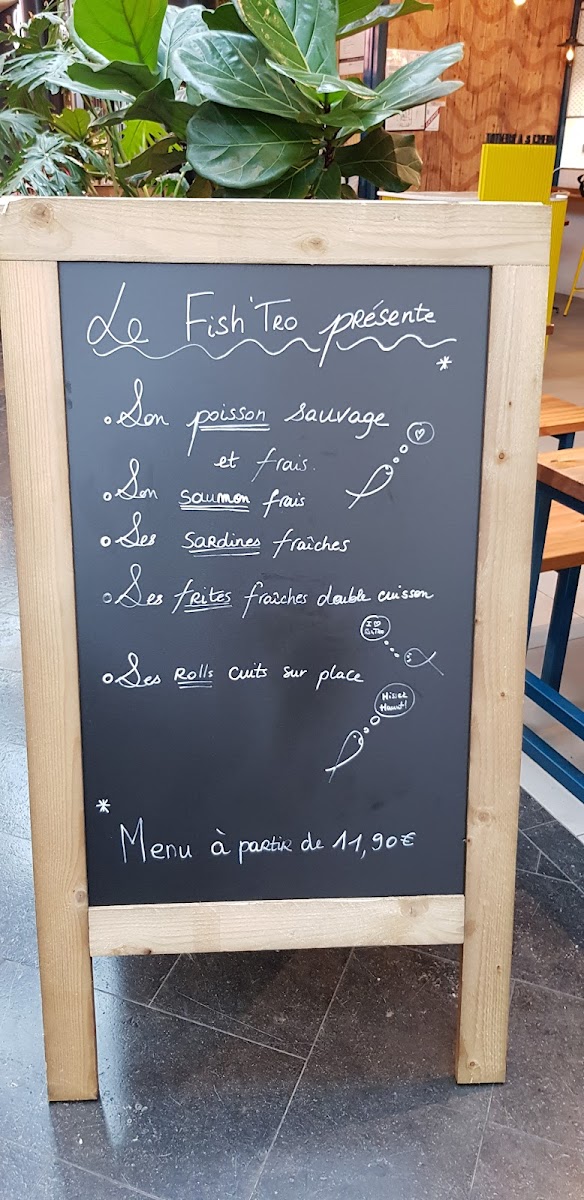 Le Fish'Tro présente
*
Son poisson sauvage
et frais.
Son saumon frais
Ses sardines fraîches
Ses frites fraîches double cuisson
I ♡
Ses Rolls cuits sur place
*
Menu à partir de 11,90€